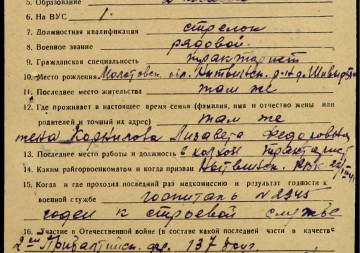 5. Образование
6. На ВУС 1.
7. Должностная квалификация стрелок
8. Военное звание рядовой.
9. Гражданская специальность тракторист
10. Место рождения Молотовск. обл. Нытвенск. р-н д.
11. Последнее место жительства там же
12. Где проживает в настоящее время семья (фамилия, имя и отчество жены или
родителей и точный их адрес) там же
жена Корнилова Лизавета Федоровна
13. Последнее место работы и должность колхоз тракторист
14. Каким райгорвоенкоматом и когда призван Нытвенск. РВК
15. Когда и где проходил последний раз медкомиссию и результат годности к
военной службе госпиталь 2945
годен к строевой службе
16. Участие в Отечественной войне (в составе какой последней части в качестве
2ой Прибалтийск. фр. 137